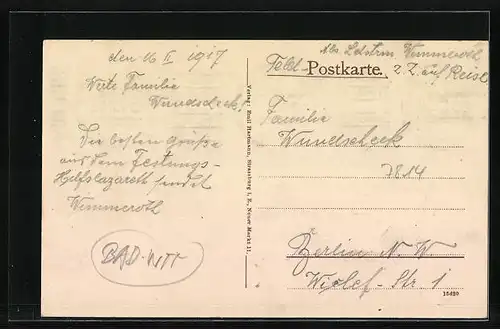 den 16 II 1917
Werte Familie
Wundscheck!
Die besten Grüße
aus dem Festungs-
Hilfslazarett sendet
Wimmeroth
BAD-WTT
Verlag: Emil Hartmann, Strassburg i. E., Neuer Markt 11.
Abs. Wimmeroth,
Feld- Postkarte. z. Z. auf Reise
Familie
Wundscheck
7814
Berlin N. W.
Wiclef-Str. 1
15420